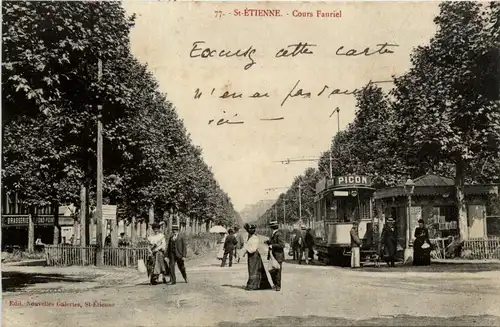 77. - St-ÉTIENNE. - Cours Fauriel
Excusez cette carte
n'en ai pas d'autre
ici —
PICON
BRASSERIE
ROND-POINT
Édit. Nouvelles Galeries, St-Étienne